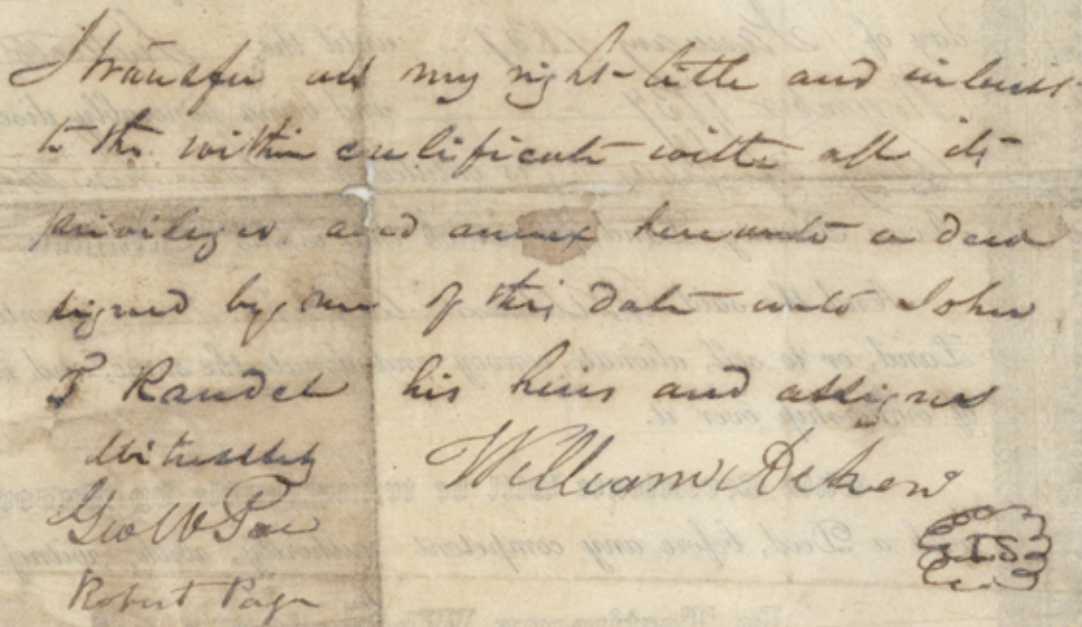 I transfer all my right title and interest
to the within certificate with all its
priviliges and annex hereunto a deed
signed by me of this date unto John
T Randel his heirs and assigns
Witnesses
William
Geo W Poe
LS
Robert Page